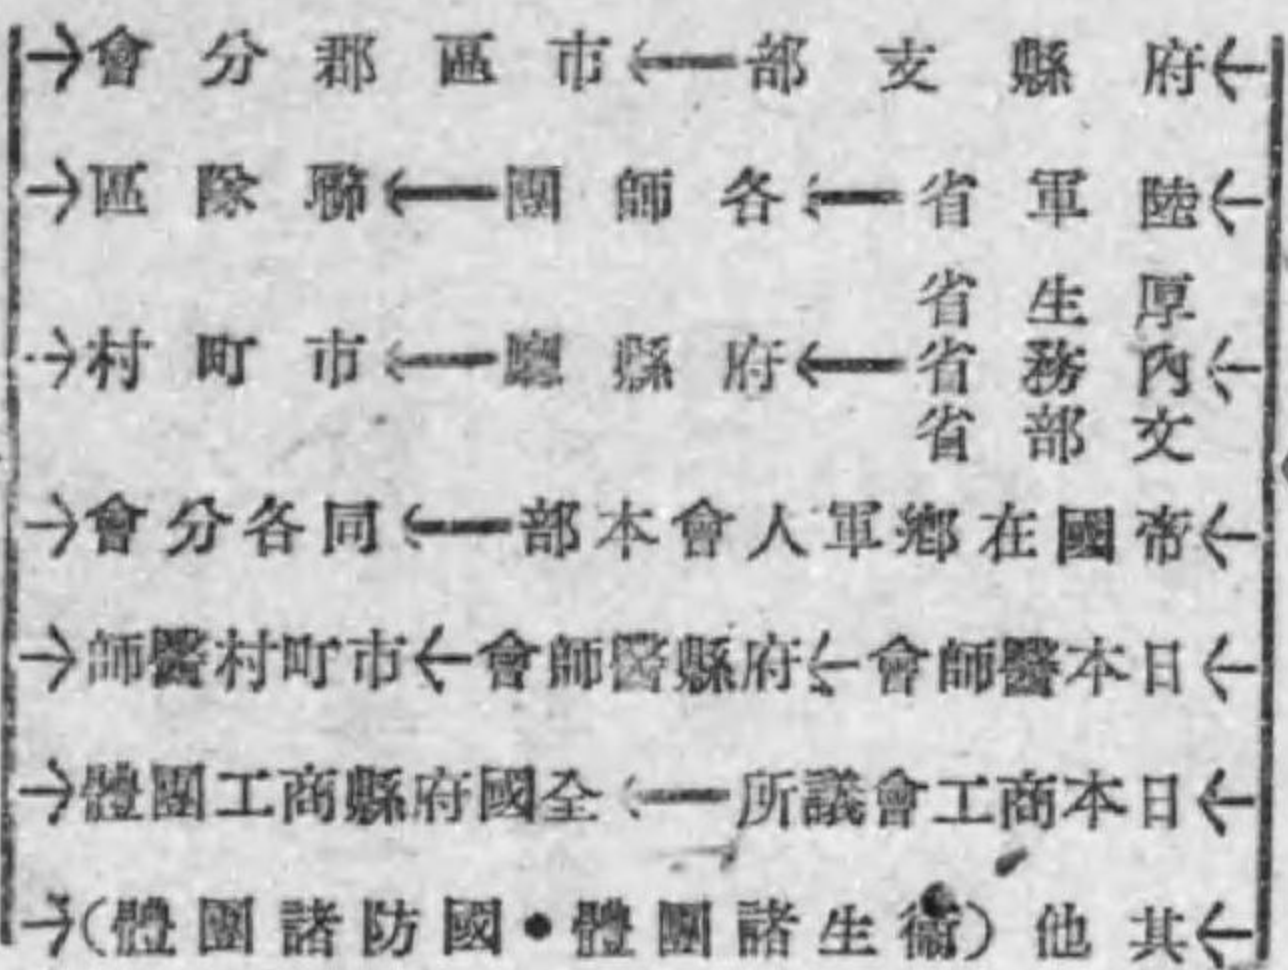 府縣支部←市區郡分會
陸軍省←各師團←聯隊區
厚生省
內務省←府縣廳←市町村
文部省
帝國在鄕軍人會本部←同各分會
日本醫師會←府縣醫師會←市町村醫師
日本商工會議所←全國府縣商工團體
其他(衞生諸團體•國防諸團體)